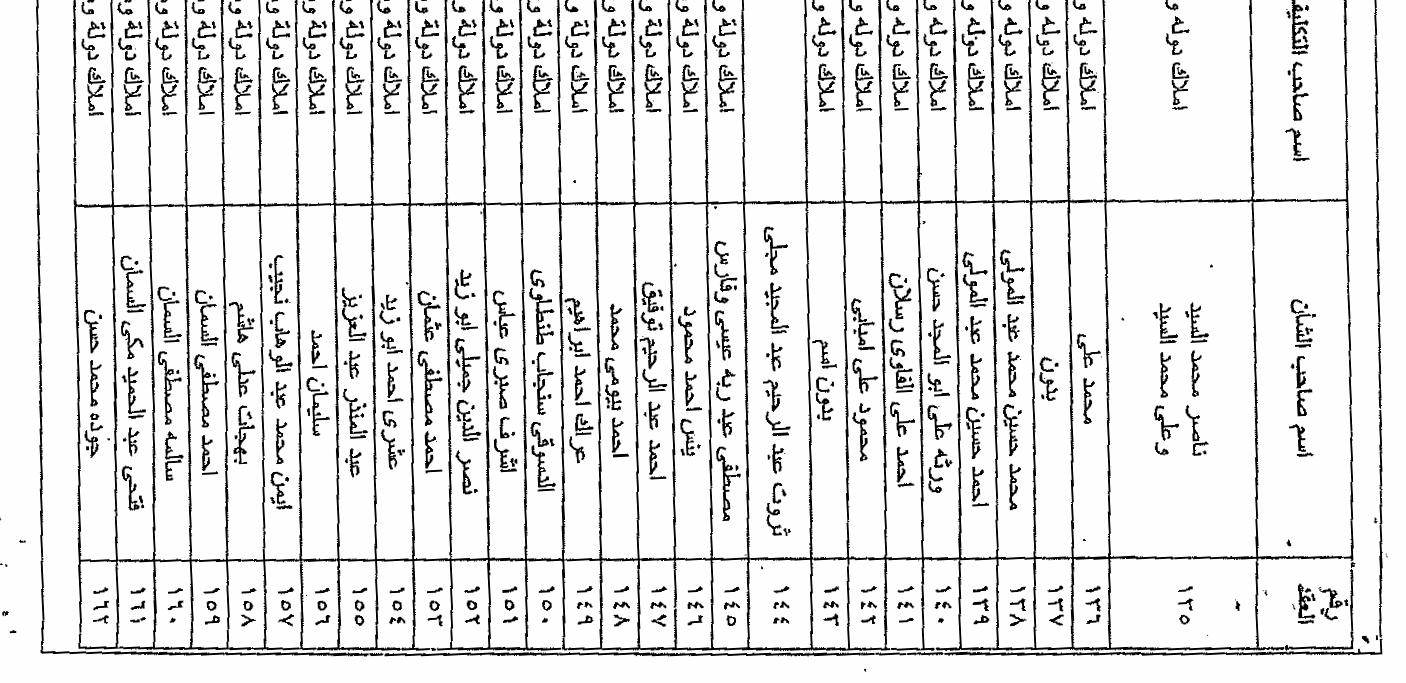 رقم العقد | اسم صاحب الشأن | اسم صاحب التكليف
١٣٥ | ناصر محمد السيد وعلى محمد السيد | املاك دوله و
١٣٦ | محمد على | املاك دوله و
١٣٧ | بدون | املاك دوله و
١٣٨ | محمد حسين محمد عبد المولى | املاك دوله و
١٣٩ | احمد حسين محمد عبد المولى | املاك دوله و
١٤٠ | ورثه على ابو المجد حسن | املاك دوله و
١٤١ | احمد على القاوى رسلان | املاك دوله و
١٤٢ | محمود على امبابى | املاك دوله و
١٤٣ | بدون اسم | املاك دوله و
١٤٤ | ثروت عبد الرحيم عبد المجيد مجلى
١٤٥ | مصطفى عبد ربه عيسى وفارس | املاك دولة و
١٤٦ | يس احمد محمود | املاك دولة و
١٤٧ | احمد عبد الرحيم توفيق | املاك دولة و
١٤٨ | احمد بيومى محمد | املاك دولة و
١٤٩ | عراك احمد ابراهيم | املاك دولة و
١٥٠ | الدسوقى سنجاب طنطاوى | املاك دولة و
١٥١ | اشرف صبرى عباس | املاك دولة و
١٥٢ | نصر الدين جميلى ابو زيد | املاك دولة و
١٥٣ | احمد مصطفى عثمان | املاك دولة و
١٥٤ | عشرى احمد ابو زيد | املاك دولة و
١٥٥ | عبد المنذر عبد العزيز | املاك دولة و
١٥٦ | سليمان احمد | املاك دولة و
١٥٧ | ايمن محمد عبد الوهاب نجيب | املاك دولة و
١٥٨ | بهجات عدلى هاشم | املاك دولة و
١٥٩ | احمد مصطفى السمان | املاك دولة و
١٦٠ | سالمه مصطفى السمان | املاك دولة و
١٦١ | فتحى عبد الحميد مكى السمان | املاك دولة و
١٦٢ | جوده محمد حسن | املاك دولة و